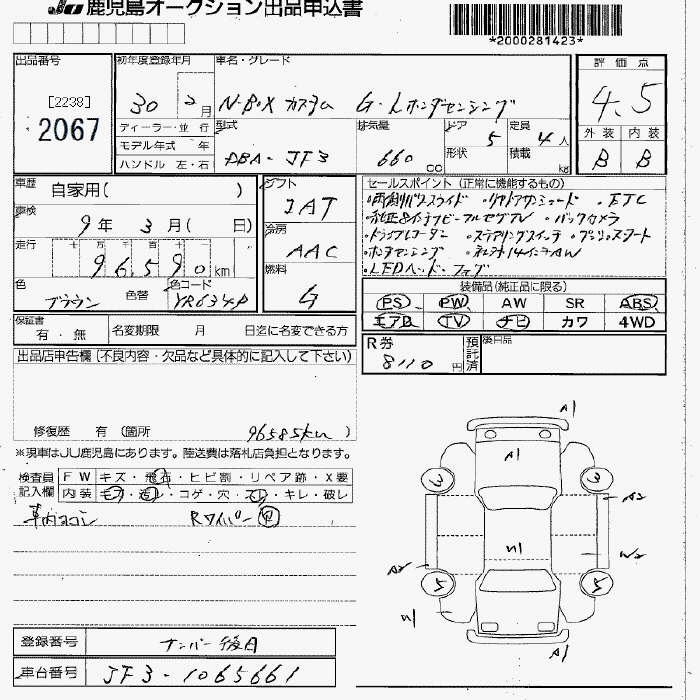 JU 鹿児島オークション出品申込書
*2000281423*
出品番号
[2238]
2067
初年度登録年月
30 2月
車名・グレード
N-BOX カスタム G・Lホンダセンシング
評価点
4.5
ディーラー・並行
モデル年式 年
ハンドル 左・右
型式
DBA-JF3
排気量
660 cc
ドア 5
形状
定員 4人
積載 kg
外装 内装
B B
車歴 自家用( )
車検
9年 3月( 日)
走行
十 万 千 百 十 一
96,590 km
色
ブラウン
色替
色コード
YR634P
シフト
IAT
冷房
AAC
燃料
G
セールスポイント (正常に機能するもの)
・両側パワースライド ・リヤトナカシェード ・ETC
・純正8インチナビ・フルセグTV ・バックカメラ
・ドライブレコーダー ・ステアリングスイッチ ・プッシュスタート
・ホンダセンシング ・純正14インチAW
・LEDヘッド・フォグ
装備品(純正品に限る)
PS PW AW SR ABS
エアB TV ナビ カワ 4WD
保証書
有・無
名変期限 月 日迄に名変できる方
R券
8110円
預託済
後日品
出品店申告欄(不良内容・欠品など具体的に記入して下さい)
修復歴 有 (箇所 96585km )
※現車はJU鹿児島にあります。陸送費は落札店負担となります。
検査員記入欄
FW キズ・飛石・ヒビ割・リペア跡・X要
内装 モケ・汚レ・コゲ・穴・スレ・キレ・破レ
車内ヨゴレ Rワイパー
登録番号 ナンバー後日
車台番号 JF3-1065661
A1
A1
3 3
A2
W1
W2
A2
5 5
W1
A1